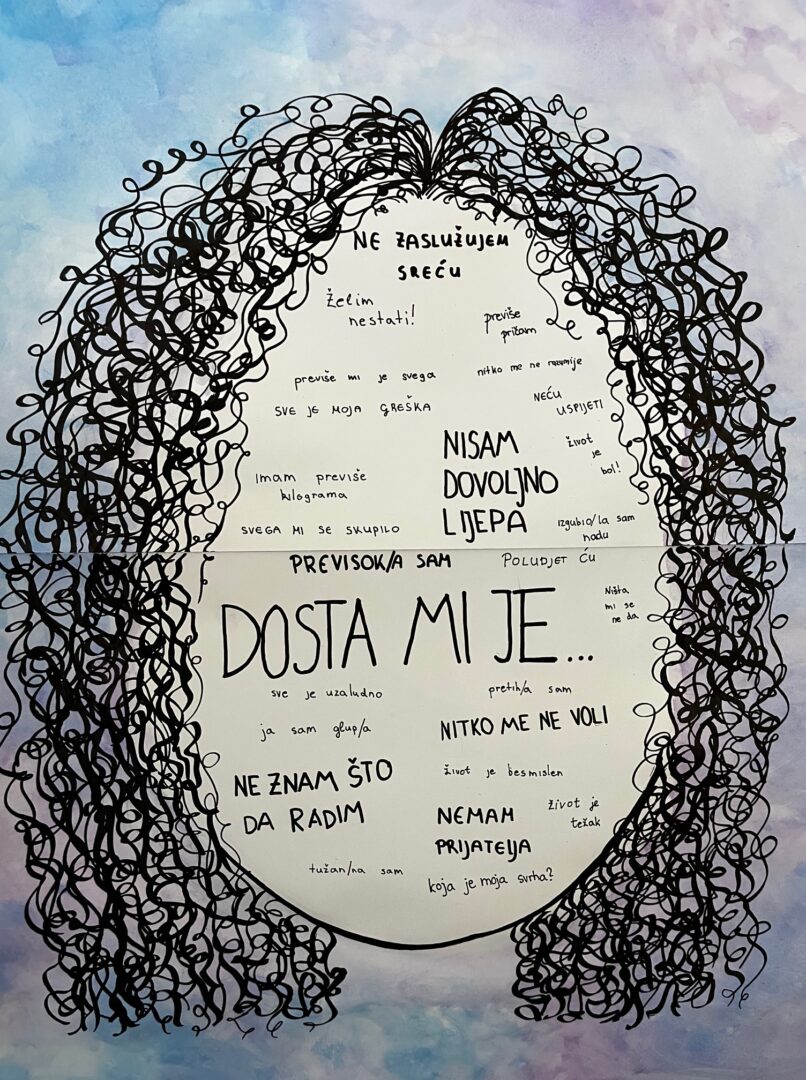 NE ZASLUŽUJEM
SREĆU
Želim
nestati!
previše
pričam
previše mi je svega
nitko me ne razumije
SVE JE MOJA GREŠKA
NEĆU
USPJETI
NISAM
DOVOLJNO
LIJEPA
život
je
bol!
Imam previše
kilograma
SVEGA MI SE SKUPILO
izgubio/la sam
nadu
PREVISOK/A SAM
POLUDJET ĆU
DOSTA MI JE...
Ništa
mi se
ne da
sve je uzaludno
pretih/a sam
ja sam glup/a
NITKO ME NE VOLI
NE ZNAM ŠTO
DA RADIM
život je besmislen
NEMAM
PRIJATELJA
život je
težak
tužan/na sam
koja je moja svrha?